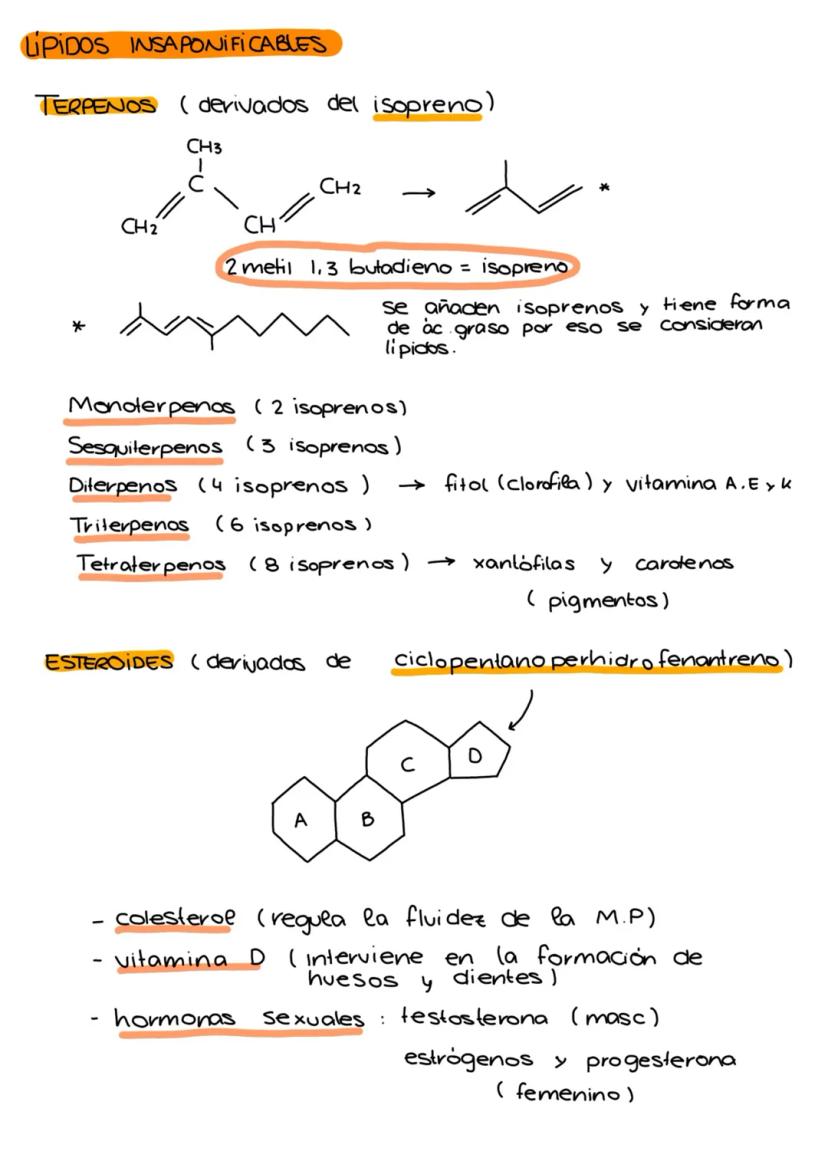 LÍPIDOS INSAPONIFICABLES
TERPENOS (derivados del isopreno)
CH3
C
CH2
CH2
CH
→ *
2 metil 1,3 butadieno = isopreno
* se añaden isoprenos y tiene forma
de ác. graso por eso se consideran
lípidos.
Monoterpenos (2 isoprenos)
Sesquiterpenos (3 isoprenos)
Diterpenos (4 isoprenos) → fitol (clorofila) y vitamina A.E y K
Triterpenos (6 isoprenos)
Tetraterpenos (8 isoprenos) → xantófilas y carotenos
(pigmentos)
ESTEROIDES (derivados de ciclopentanoperhidrofenantreno)
C D
A B
- colesterol (regula la fluidez de la M.P)
- vitamina D (interviene en la formación de
huesos y dientes)
- hormonas sexuales : testosterona (masc)
estrógenos y progesterona
(femenino)